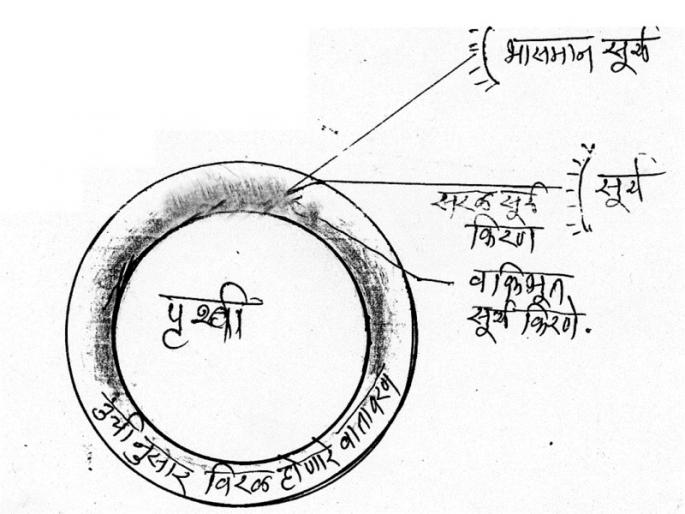 भासमान सूर्य
सूर्य
सरळ सूर्य
किरण
वक्रिभूत
सूर्य किरणे.
पृथ्वी
उंचीनुसार विरळ होणारे वातावरण